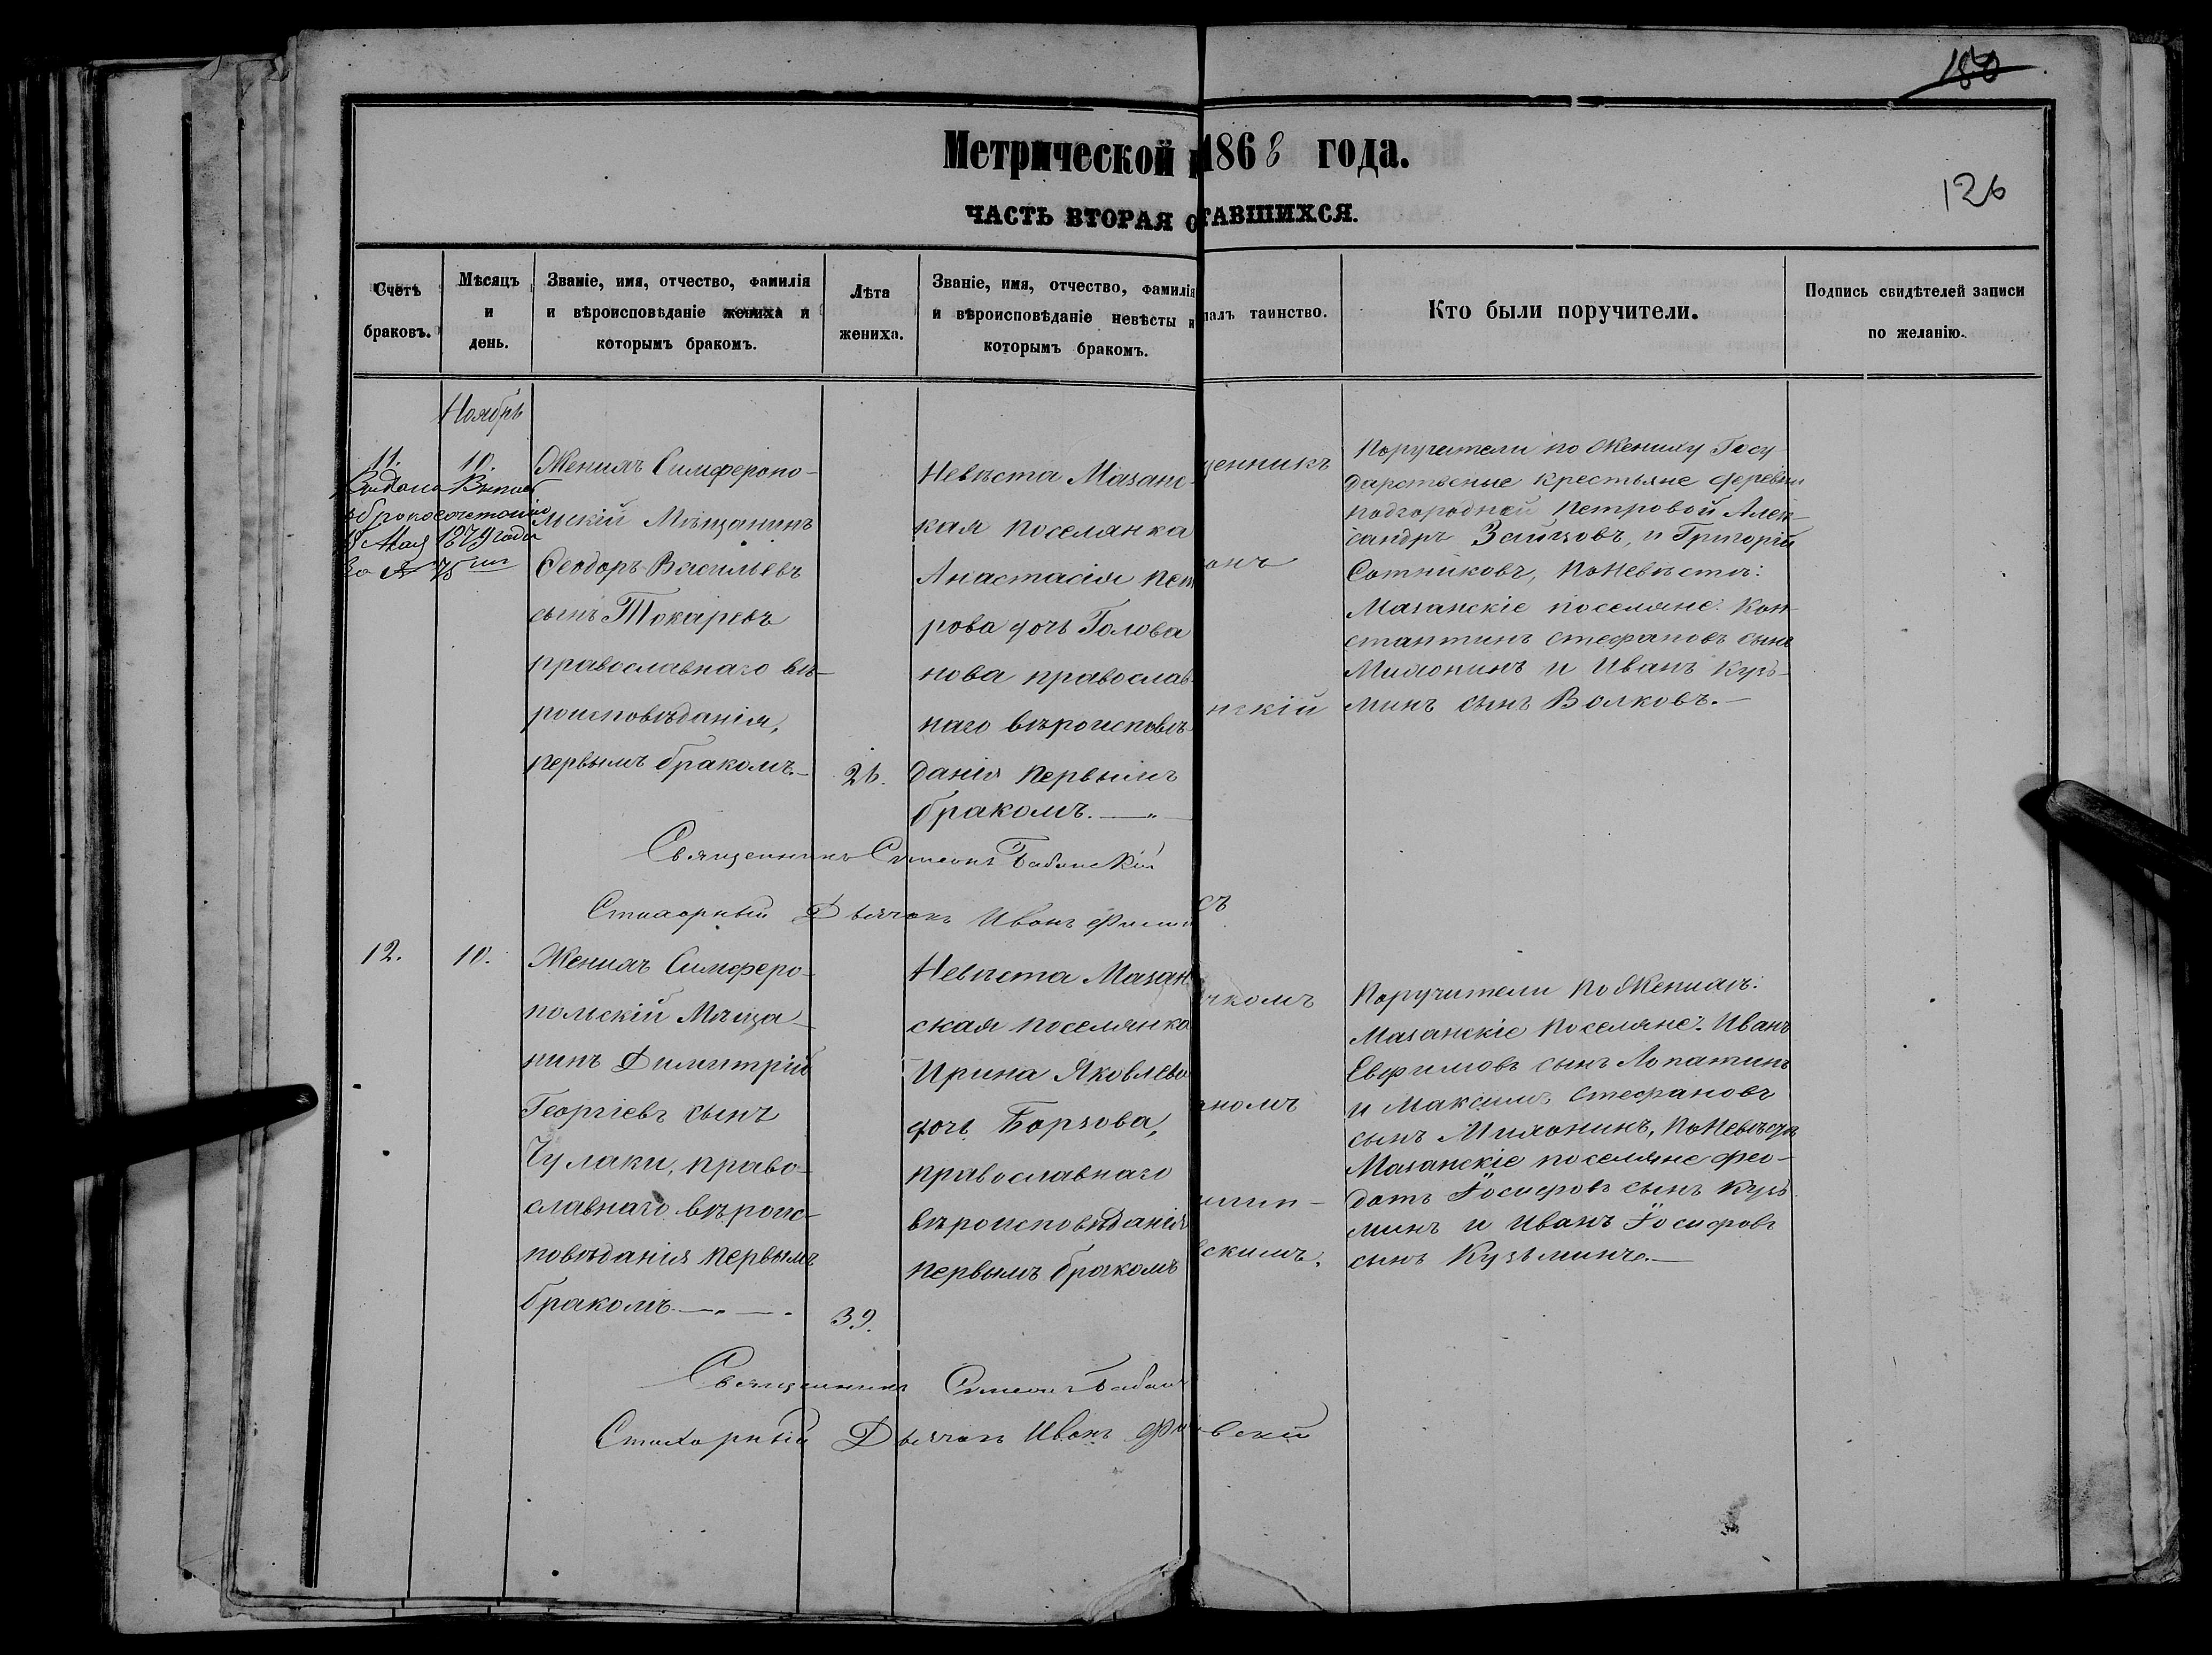 180
126
Метрической 1868 года.
ЧАСТЬ ВТОРАЯ О ТАВШИХСЯ.
Счетъ браковъ.
Мѣсяцъ и день.
Званіе, имя, отчество, фамилія и вѣроисповѣданіе жениха и которымъ бракомъ.
Лѣта жениха.
Званіе, имя, отчество, фамилія и вѣроисповѣданіе невѣсты и которымъ бракомъ.
шалъ таинство.
Кто были поручители.
Подпись свидѣтелей записи по желанію.
Ноябрь
11.
10.
Выдана Выпись
о бракосочетаніи
Мая 1879 года
за № 75
Женихъ Симферопо-
льскій Мѣщанинъ
Ѳеодоръ Васильевъ
сынъ Токаревъ
православнаго вѣ-
роисповѣданія,
первымъ бракомъ.
26.
Невѣста Мазанс-
кая поселянка
Анастасія Пет
рова дочь Голова
нова православ-
наго вѣроисповѣ-
данія первымъ
бракомъ.
щенникъ
онъ
нскій
Поручители по Жениху Госу-
дарственые крестьяне деревни
подгородней Петровой Алек-
сандръ Зайцовъ, и Григорій
Сотниковъ, по Невѣстѣ:
Мазанскіе поселяне: Кон-
стантинъ Стефановъ сынъ
Милонинъ и Иванъ Кузь-
минъ сынъ Волковъ.
Священникъ Симеонъ Бабанскій
Стихарный Дьячокъ Иванъ
12.
10.
Женихъ Симферо-
польскій Мѣща-
нинъ Димитрій
Георгіевъ сынъ
Чулаки, право-
славнаго вѣроис-
повѣданія первымъ
бракомъ
39.
Невѣста Мазан
ская поселянка
Ирина Яковлева
дочь Борзова,
православнаго
вѣроисповѣданія
первымъ бракомъ
чкомъ
номъ
скимъ.
Поручители по Женихѣ:
Мазанскіе поселяне: Иванъ
Евфимовъ сынъ Лопатинъ
и Максимъ Стефановъ
сынъ Милонинъ, по Невѣстѣ
Мазанскіе поселяне Фео-
дотъ Іосифовъ сынъ Кузь
минъ и Иванъ Іосифовъ
сынъ Кузьминъ.
Священникъ Симеонъ Бабан
Стихарный Дьячокъ Иванъ Фи вскій